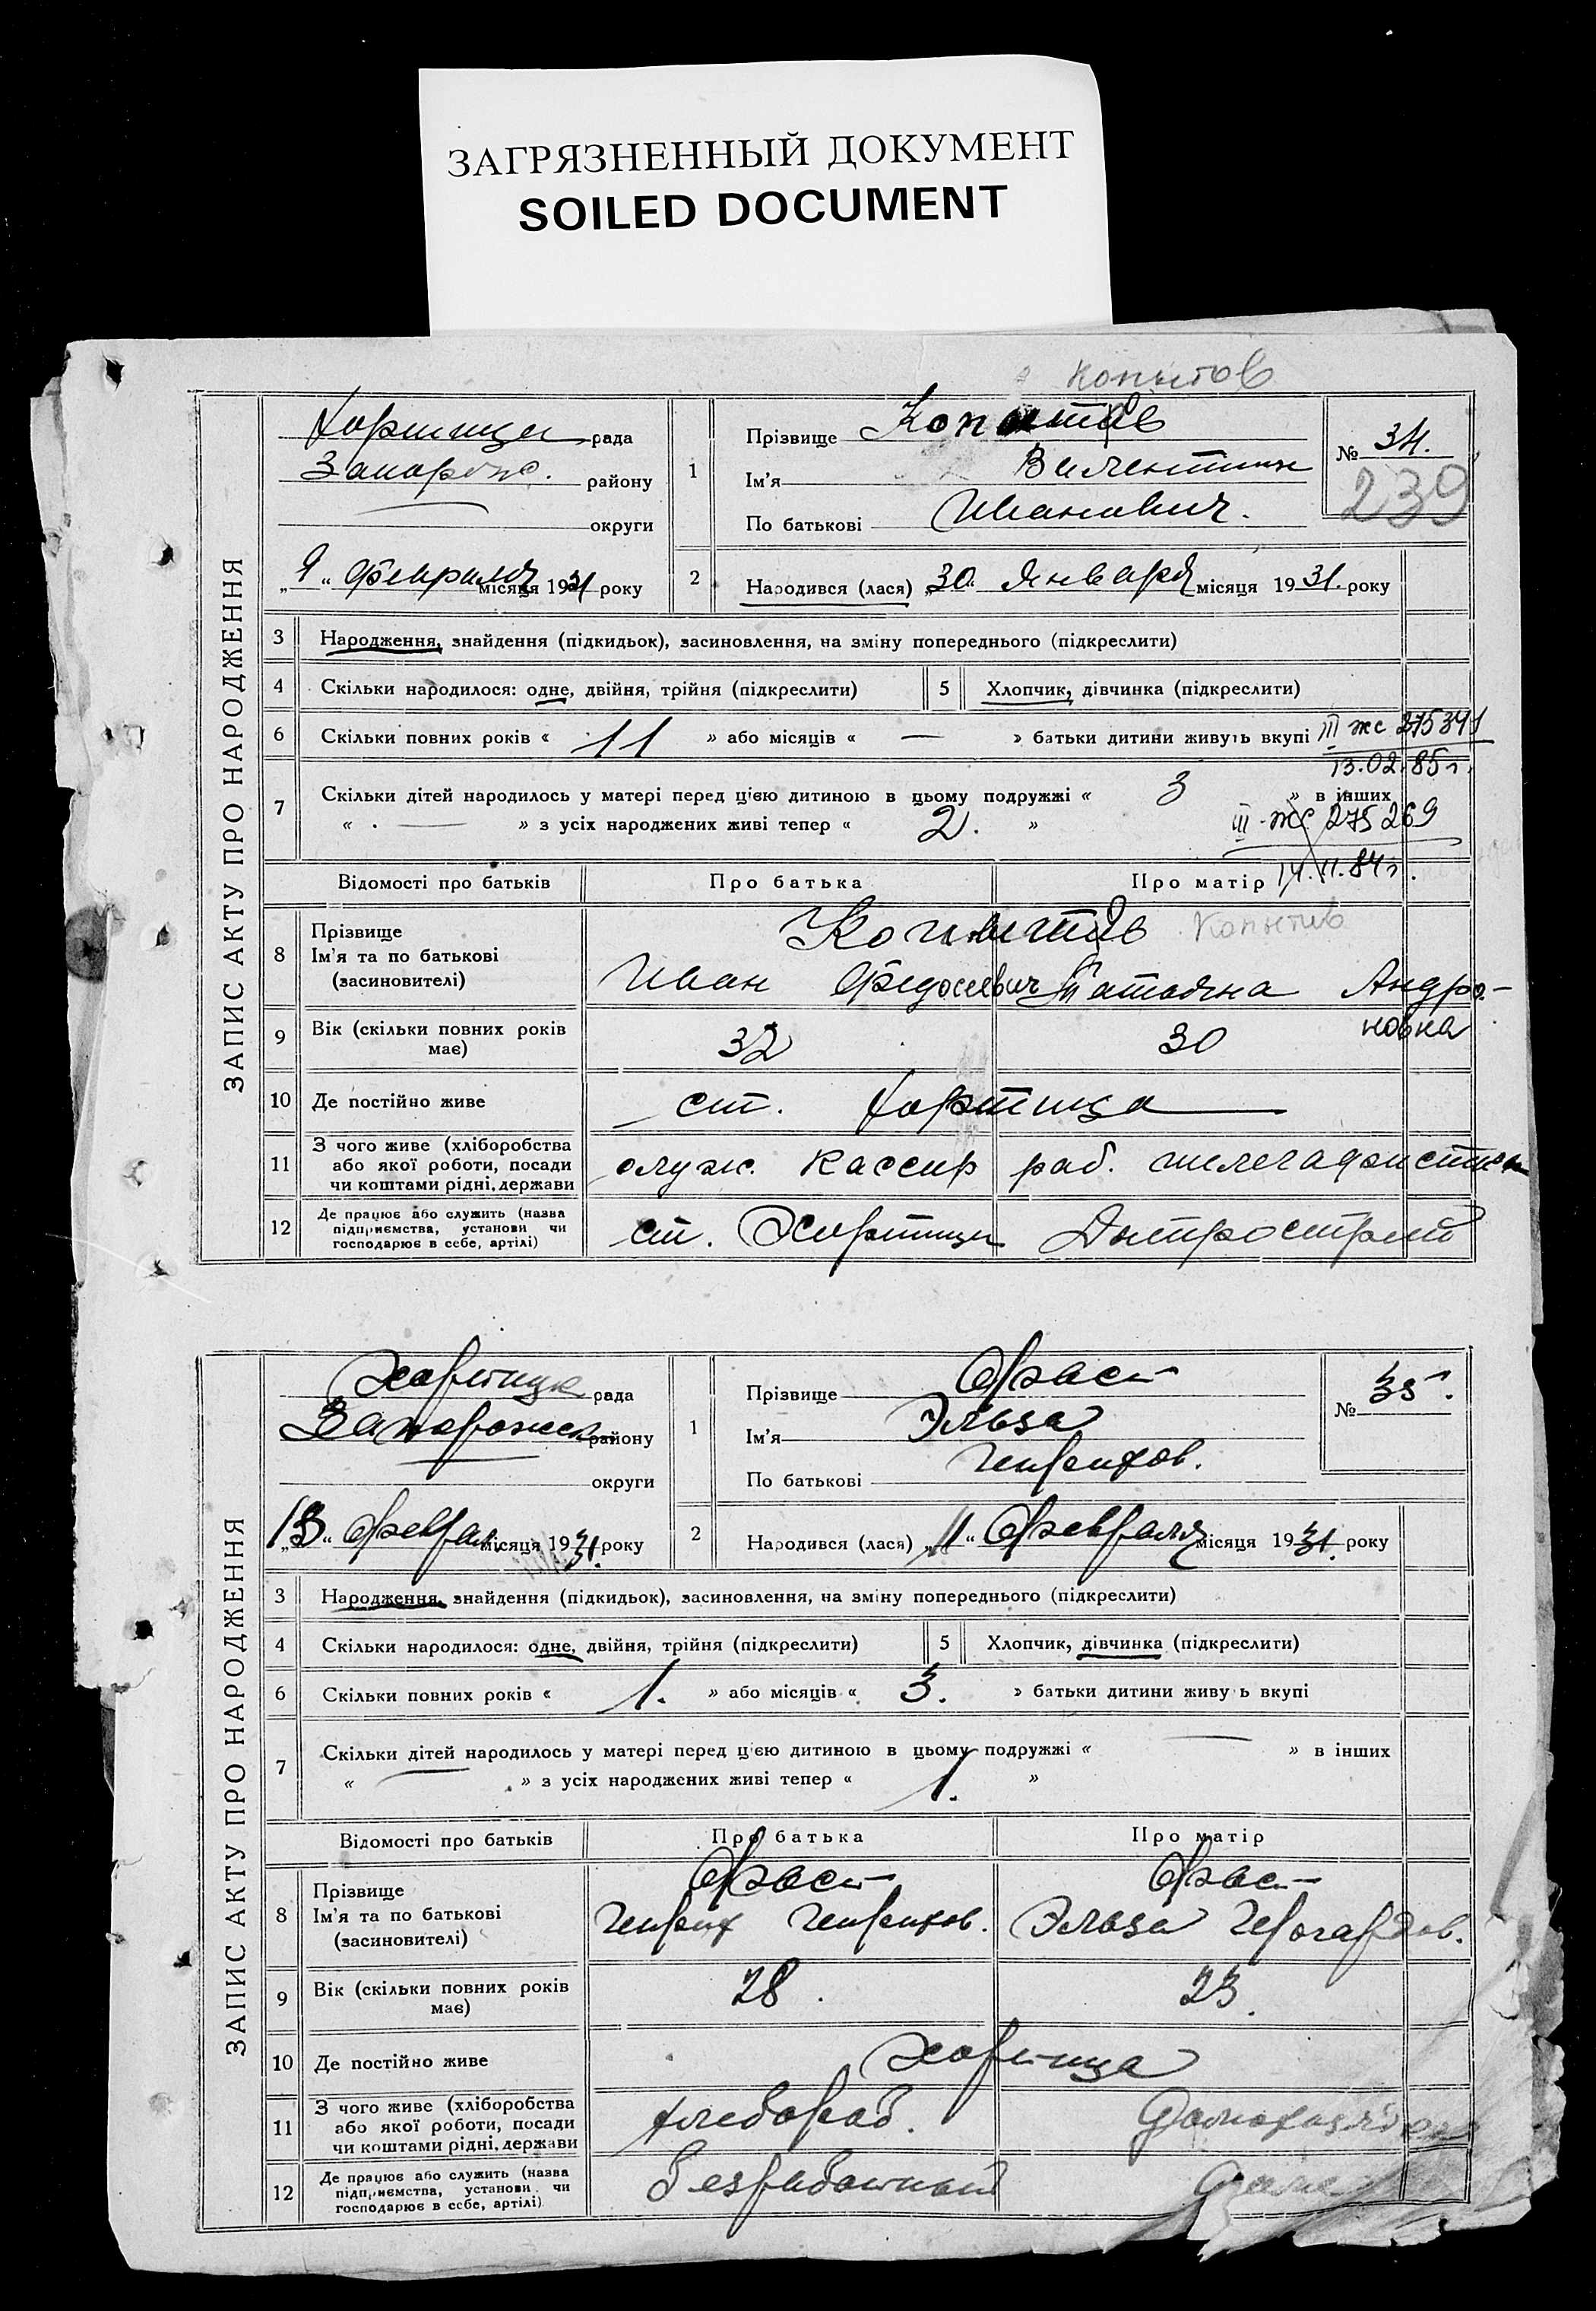 ЗАГРЯЗНЕННЫЙ ДОКУМЕНТ
SOILED DOCUMENT
Копытов
ЗАПИС АКТУ ПРО НАРОДЖЕННЯ
Хортица рада
Запорож. району
округи
„9“ февраля місяця 1931 року
1
Прізвище Копытов
Ім'я Валентин
По батькові Иванович.
№ 34.
239
2
Народився (лася) „30“ Января місяця 1931. року
3 Народження, знайдення (підкидьок), засиновлення, на зміну попереднього (підкреслити)
4 Скільки народилося: одне, двійня, трійня (підкреслити)
5 Хлопчик, дівчинка (підкреслити)
6 Скільки повних років « 11 » або місяців « — » батьки дитини живуть вкупі
III жс 275341
13.02.85г.
7 Скільки дітей народилось у матері перед цією дитиною в цьому подружжі « 3 » в інших
« — » з усіх народжених живі тепер « 2. »
III-жс 275269
14.11.84г.
Відомості про батьків Про батька Про матір
8 Прізвище
Ім'я та по батькові
(засновителі)
Копытов Копытов
Иван Федосеевич Татьяна Андро-
новна
9 Вік (скільки повних років
має)
32 30
10 Де постійно живе ст. Хортица
11 З чого живе (хліборобства
або якої роботи, посади
чи коштами рідні, держави
служ. кассир раб.
12 Де працює або служить (назва
підприємства, установи чи
господарює в себе, артілі)
ст. Хортица Днепрострой
ЗАПИС АКТУ ПРО НАРОДЖЕННЯ
Хортицк рада
Запорожск району
округи
„13“ февраля місяця 1931. року
1
Прізвище Фаст
Ім'я Эльза
По батькові Генрихов.
№ 35.
2
Народився (лася) „11“ февраля місяця 1931. року
3 Народження, знайдення (підкидьок), засиновлення, на зміну попереднього (підкреслити)
4 Скільки народилося: одне, двійня, трійня (підкреслити)
5 Хлопчик, дівчинка (підкреслити)
6 Скільки повних років « 1. » або місяців « 3. » батьки дитини живуть вкупі
7 Скільки дітей народилось у матері перед цією дитиною в цьому подружжі « — » в інших
« — » з усіх народжених живі тепер « 1. »
Відомості про батьків Про батька Про матір
8 Прізвище
Ім'я та по батькові
(засиновителі)
Фаст Фаст
Генрих Генрихов. Эльза
9 Вік (скільки повних років
має)
28. 23.
10 Де постійно живе Хортица
11 З чого живе (хліборобства
або якої роботи, посади
чи коштами рідні, держави
хлебороб.
12 Де працює або служить (назва
підприємства, установи чи
господарює в себе, артілі)
безработный